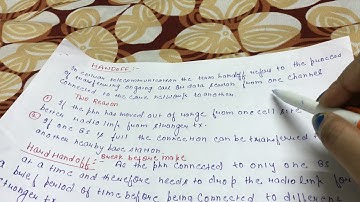 HANDOFF:-
In cellular telecommunication the term handoff refers to the process
of transferring ongoing call or data session from one channel
connected to the core network to another.
Two Reason
① If the phn has moved out of range from one cell site
② hence radio link from stronger tx.
If one BS is full the connection can be transferred to
another nearby base station.
Hard Handoff:- break before make
As the phn connected to only one BS
at a time and therefore needs to drop the radio link for
a brief period of time before being connected to different
stronger tx.